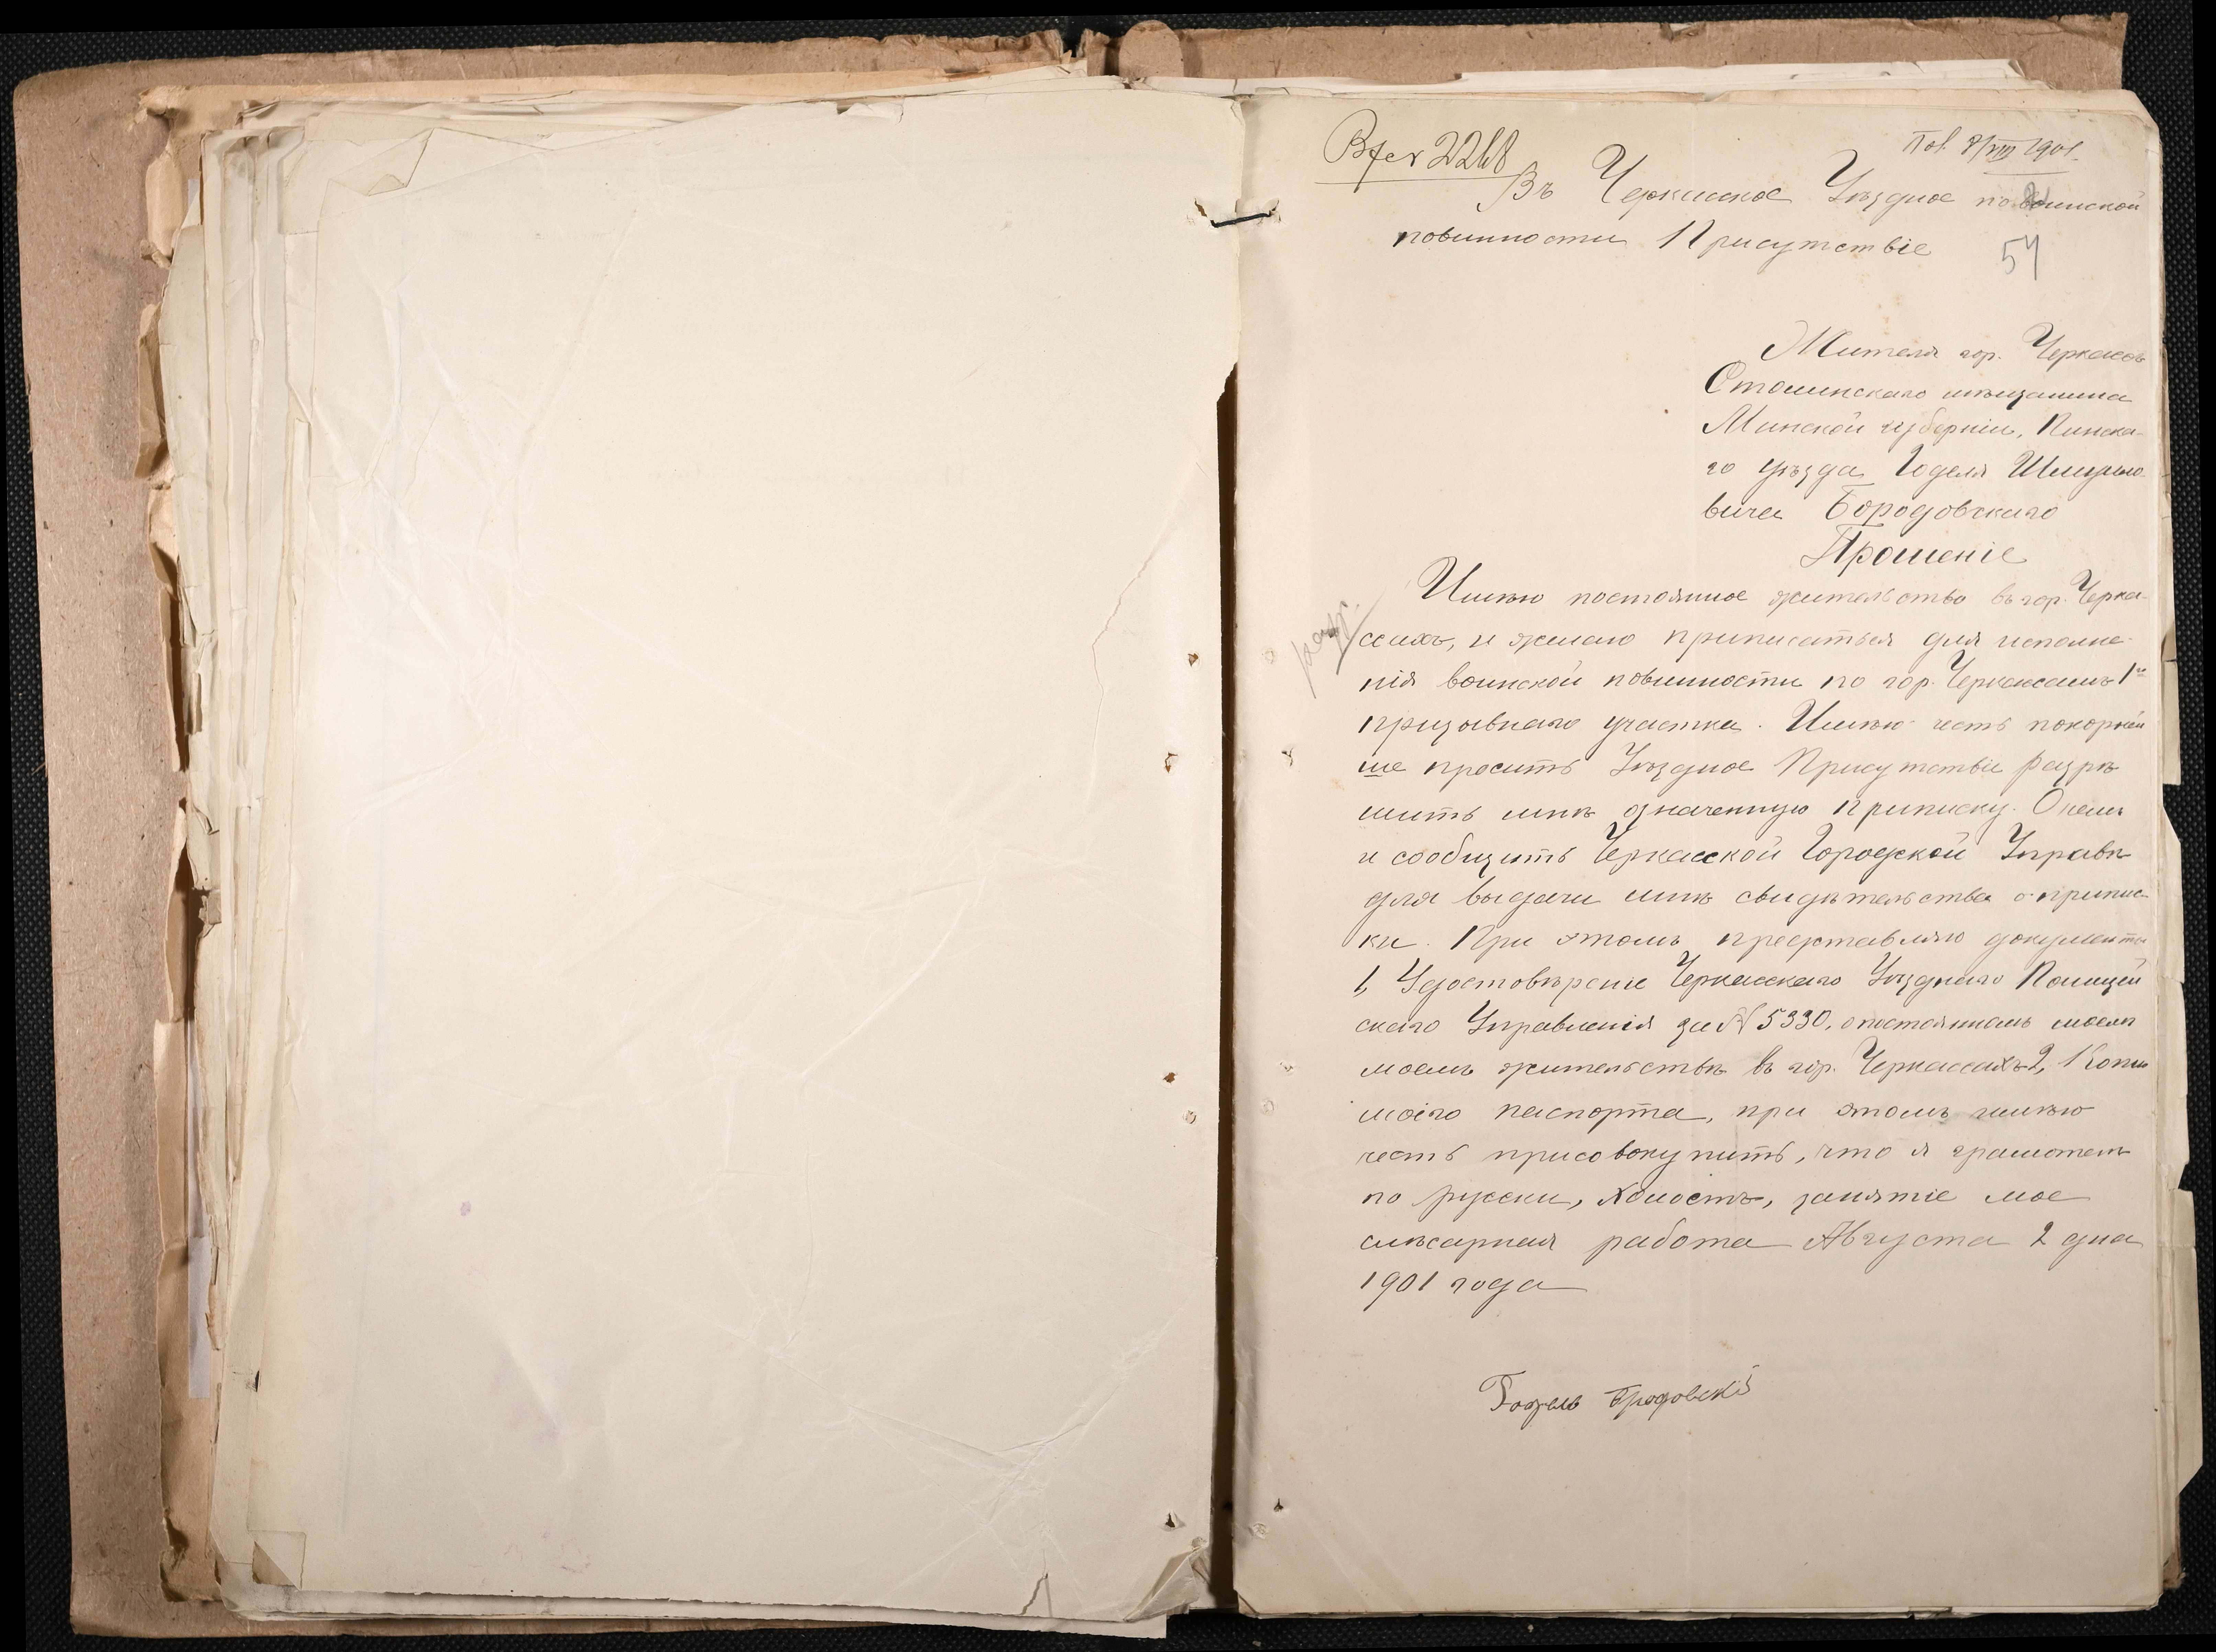 Пол. 8/VIII 1901.
Въ Черкасское Уѣздное по воинской
повинности Присутствіе
54
Жителя гор. Черкассъ
Столинскаго мѣщанина
Минской губерніи, Пинска-
го уѣзда Годеля Шмуйло-
вича Бородовскаго
Прошеніе
Имѣю постоянное жительство въ гор. Черка-
ссахъ, и желаю приписаться для исполне-
нія воинской повинности по гор. Черкассамъ 1го
призывнаго участка. Имѣю честь покорнѣй
ше просить Уѣздное Присутствіе разрѣ
шить мнѣ означенную приписку. О чемъ
и сообщить Черкасской Городской Управѣ
для выдачи мнѣ свидѣтельства о припис-
ки. При этомъ представляю документы
1, Удостовѣреніе Черкасскаго Уѣзднаго Полицей
скаго Управленія за № 5330, о постоянномъ моемъ
моемъ жительствѣ въ гор. Черкассахъ 2, Копію
моего паспорта, при этомъ имѣю
честь присовокупить, что я грамотенъ
по русски, холостъ, занятіе мое
слѣсарная работа Августа 2 дня
1901 года
Годель Бродовскій